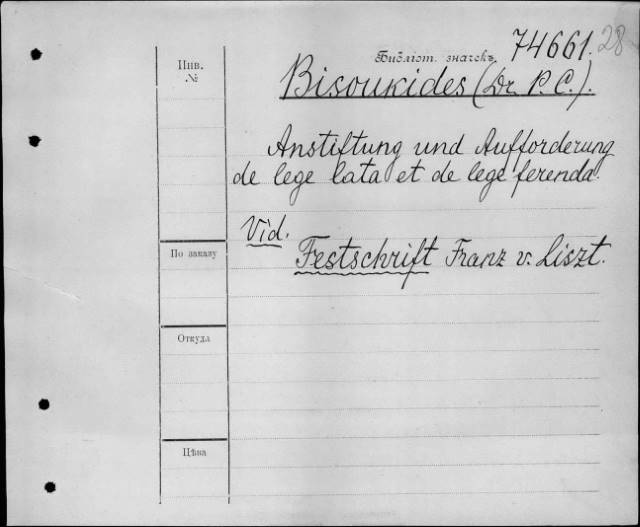 74661. 28
Инв.
№
Библіот. значекъ
Bisoukides (Dr. P. C.).
Anstiftung und Aufforderung
de lege lata et de lege ferenda.
Vid.
Festschrift Franz v. Liszt.
По заказу
Откуда
Цѣна